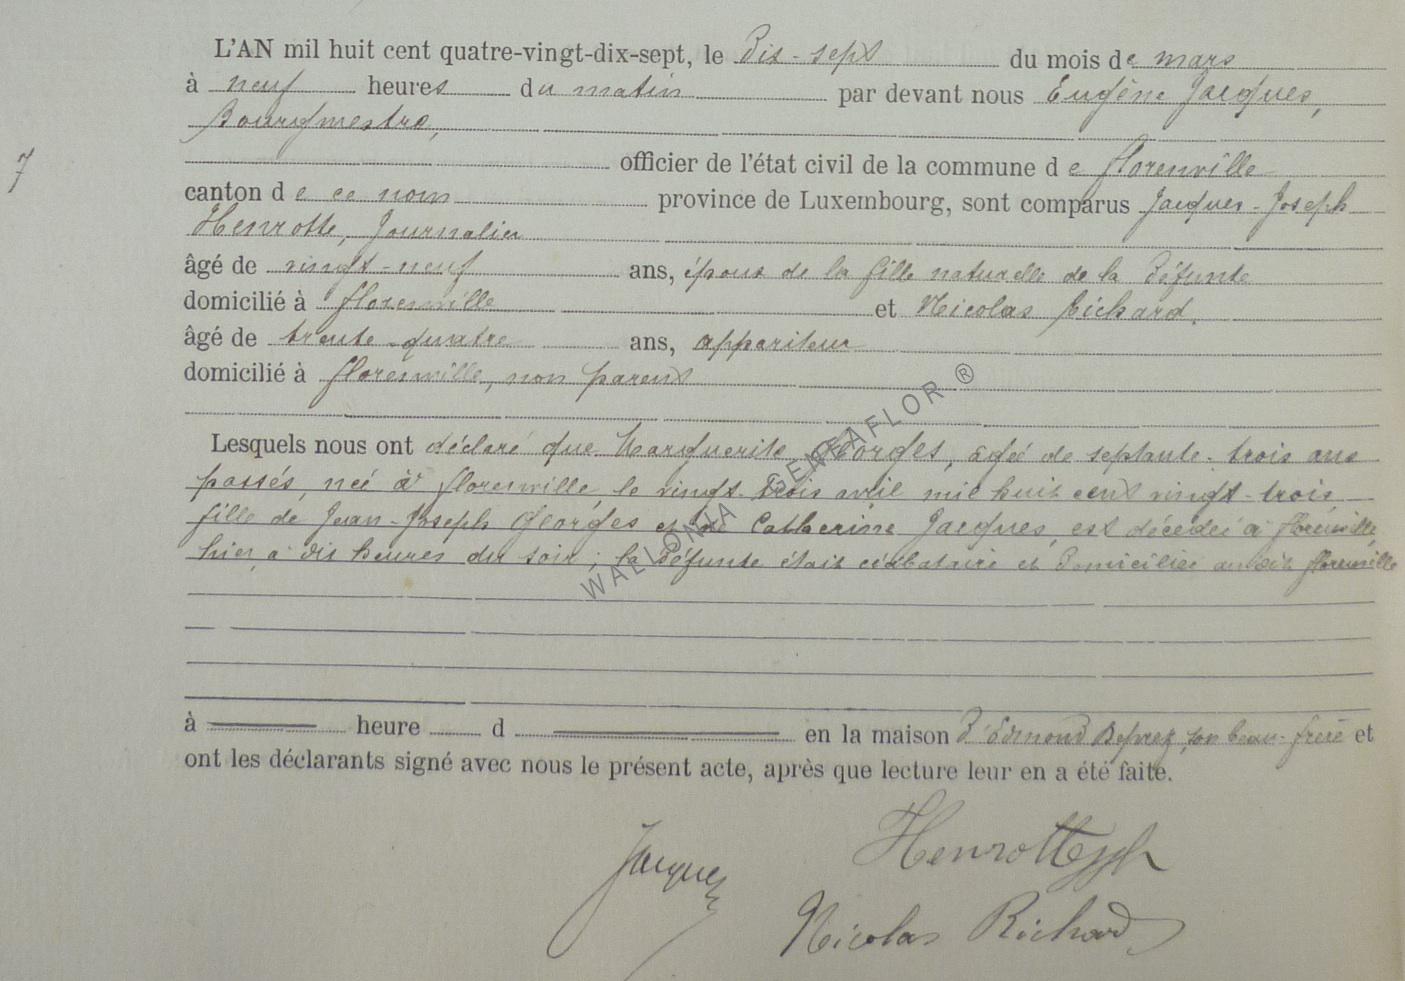 L'AN mil huit cent quatre-vingt-dix-sept, le Dix-sept du mois de mars
à neuf heures du matin par devant nous Eugène Jacques,
Bourgmestre,
officier de l'état civil de la commune de florenville
7
canton de ce nom province de Luxembourg, sont comparus Jacques-Joseph
Henrotte, Journalier
âgé de vingt-neuf ans, époux de la fille naturelle de la Défunte
domicilié à florenville et Nicolas Richard,
âgé de trente-quatre ans, appariteur
domicilié à florenville, non parent
Lesquels nous ont déclaré que Marguerite Georges, agée de septante-trois ans
passés, née à florenville le vingt-trois avril mil huit cent vingt-trois
fille de Jean-Joseph Georges et de Catherine Jacques, est décédée à florenville
hier, à dix heures du soir; la Défunte était célibataire et Domiciliée au dit florenville
à heure d en la maison D'Edmond son beau-frère et
ont les déclarants signé avec nous le présent acte, après que lecture leur en a été faite.
Jacques
Henrotte
Nicolas Richard
WALLONIA GENEAFLOR ®